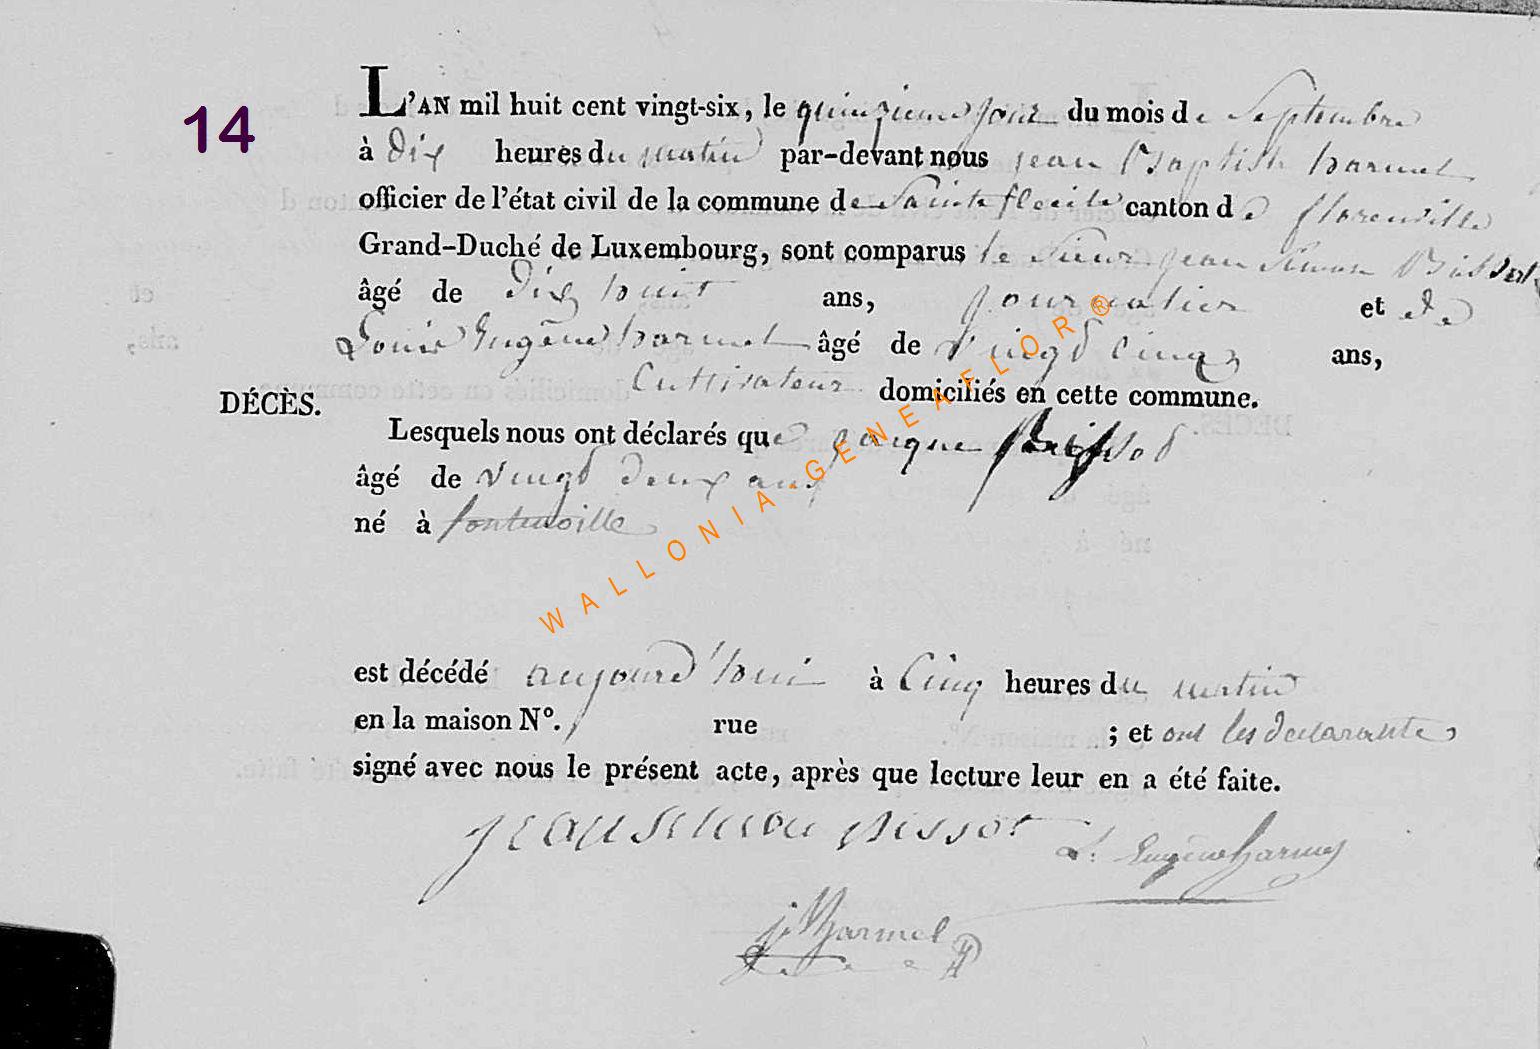 14
L'AN mil huit cent vingt-six, le quinzieme jour du mois de Septembre
à dix heures du matin par-devant nous jean Baptiste harmel
officier de l'état civil de la commune de Sainte Cecile canton de florenville
Grand-Duché de Luxembourg, sont comparus le Sieur jean Simon
âgé de dix huit ans, journalier et de
Louis Eugène harmel âgé de vingt cinq ans,
Cultivateur domiciliés en cette commune.
DÉCÈS.
Lesquels nous ont déclarés que
âgé de vingt deux ans
né à fontenoille
est décédé aujourd'hui à Cinq heures du matin
en la maison N°. rue ; et ont les declarants
signé avec nous le présent acte, après que lecture leur en a été faite.
jean simon pissot L. Eugène harmel
j. B harmel
WALLONIA GENEAFLOR®